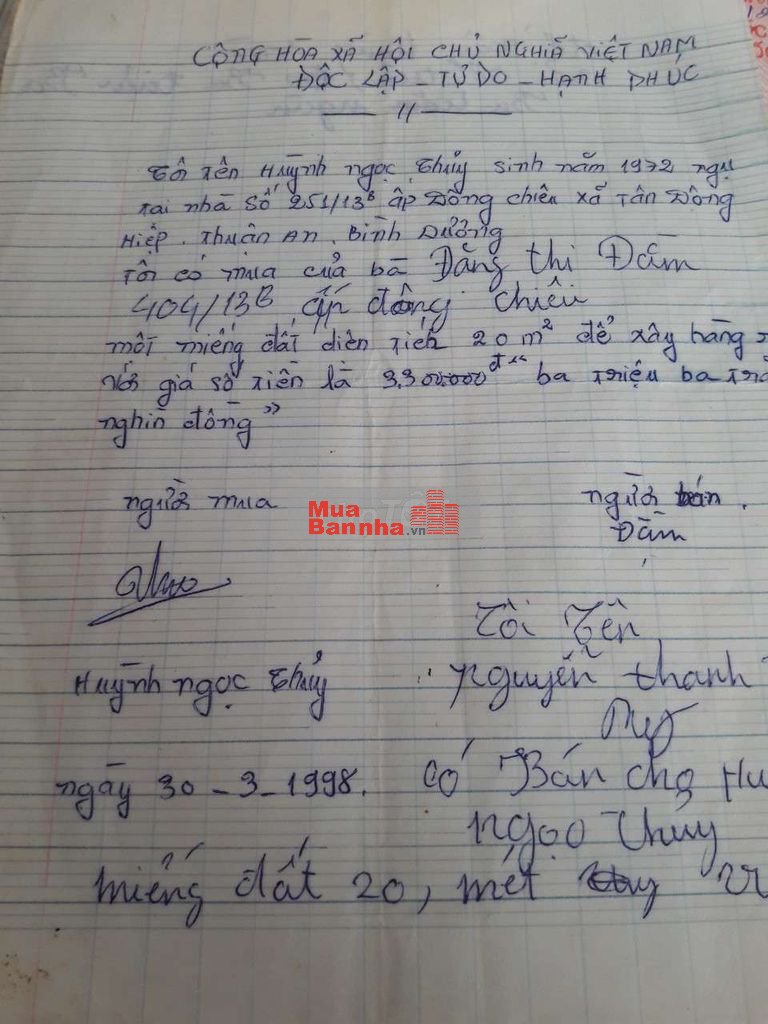 CỘNG HÒA XÃ HỘI CHỦ NGHĨA VIỆT NAM
ĐỘC LẬP - TỰ DO - HẠNH PHÚC
Tôi tên Huỳnh ngọc Thủy sinh năm 1972 ngụ
tại nhà số 251/13B ấp Đông chiêu xã Tân Đông
Hiệp. Thuận An. Bình Dương
Tôi có mua của bà Đặng thi Đầm
404/13B ấp đông chiêu
một miếng đất diện tích 20m² để xây bằng
Với giá số tiền là 3.300.000đ "ba triệu ba
nghìn đồng"
người mua
người bán.
Đầm
Mua
Bannha.vn
Huỳnh ngọc Thủy
Tôi Tên
nguyễn thanh
ngày 30-3-1998.
có Bán cho
ngọc Thủy
miếng đất 20, mét